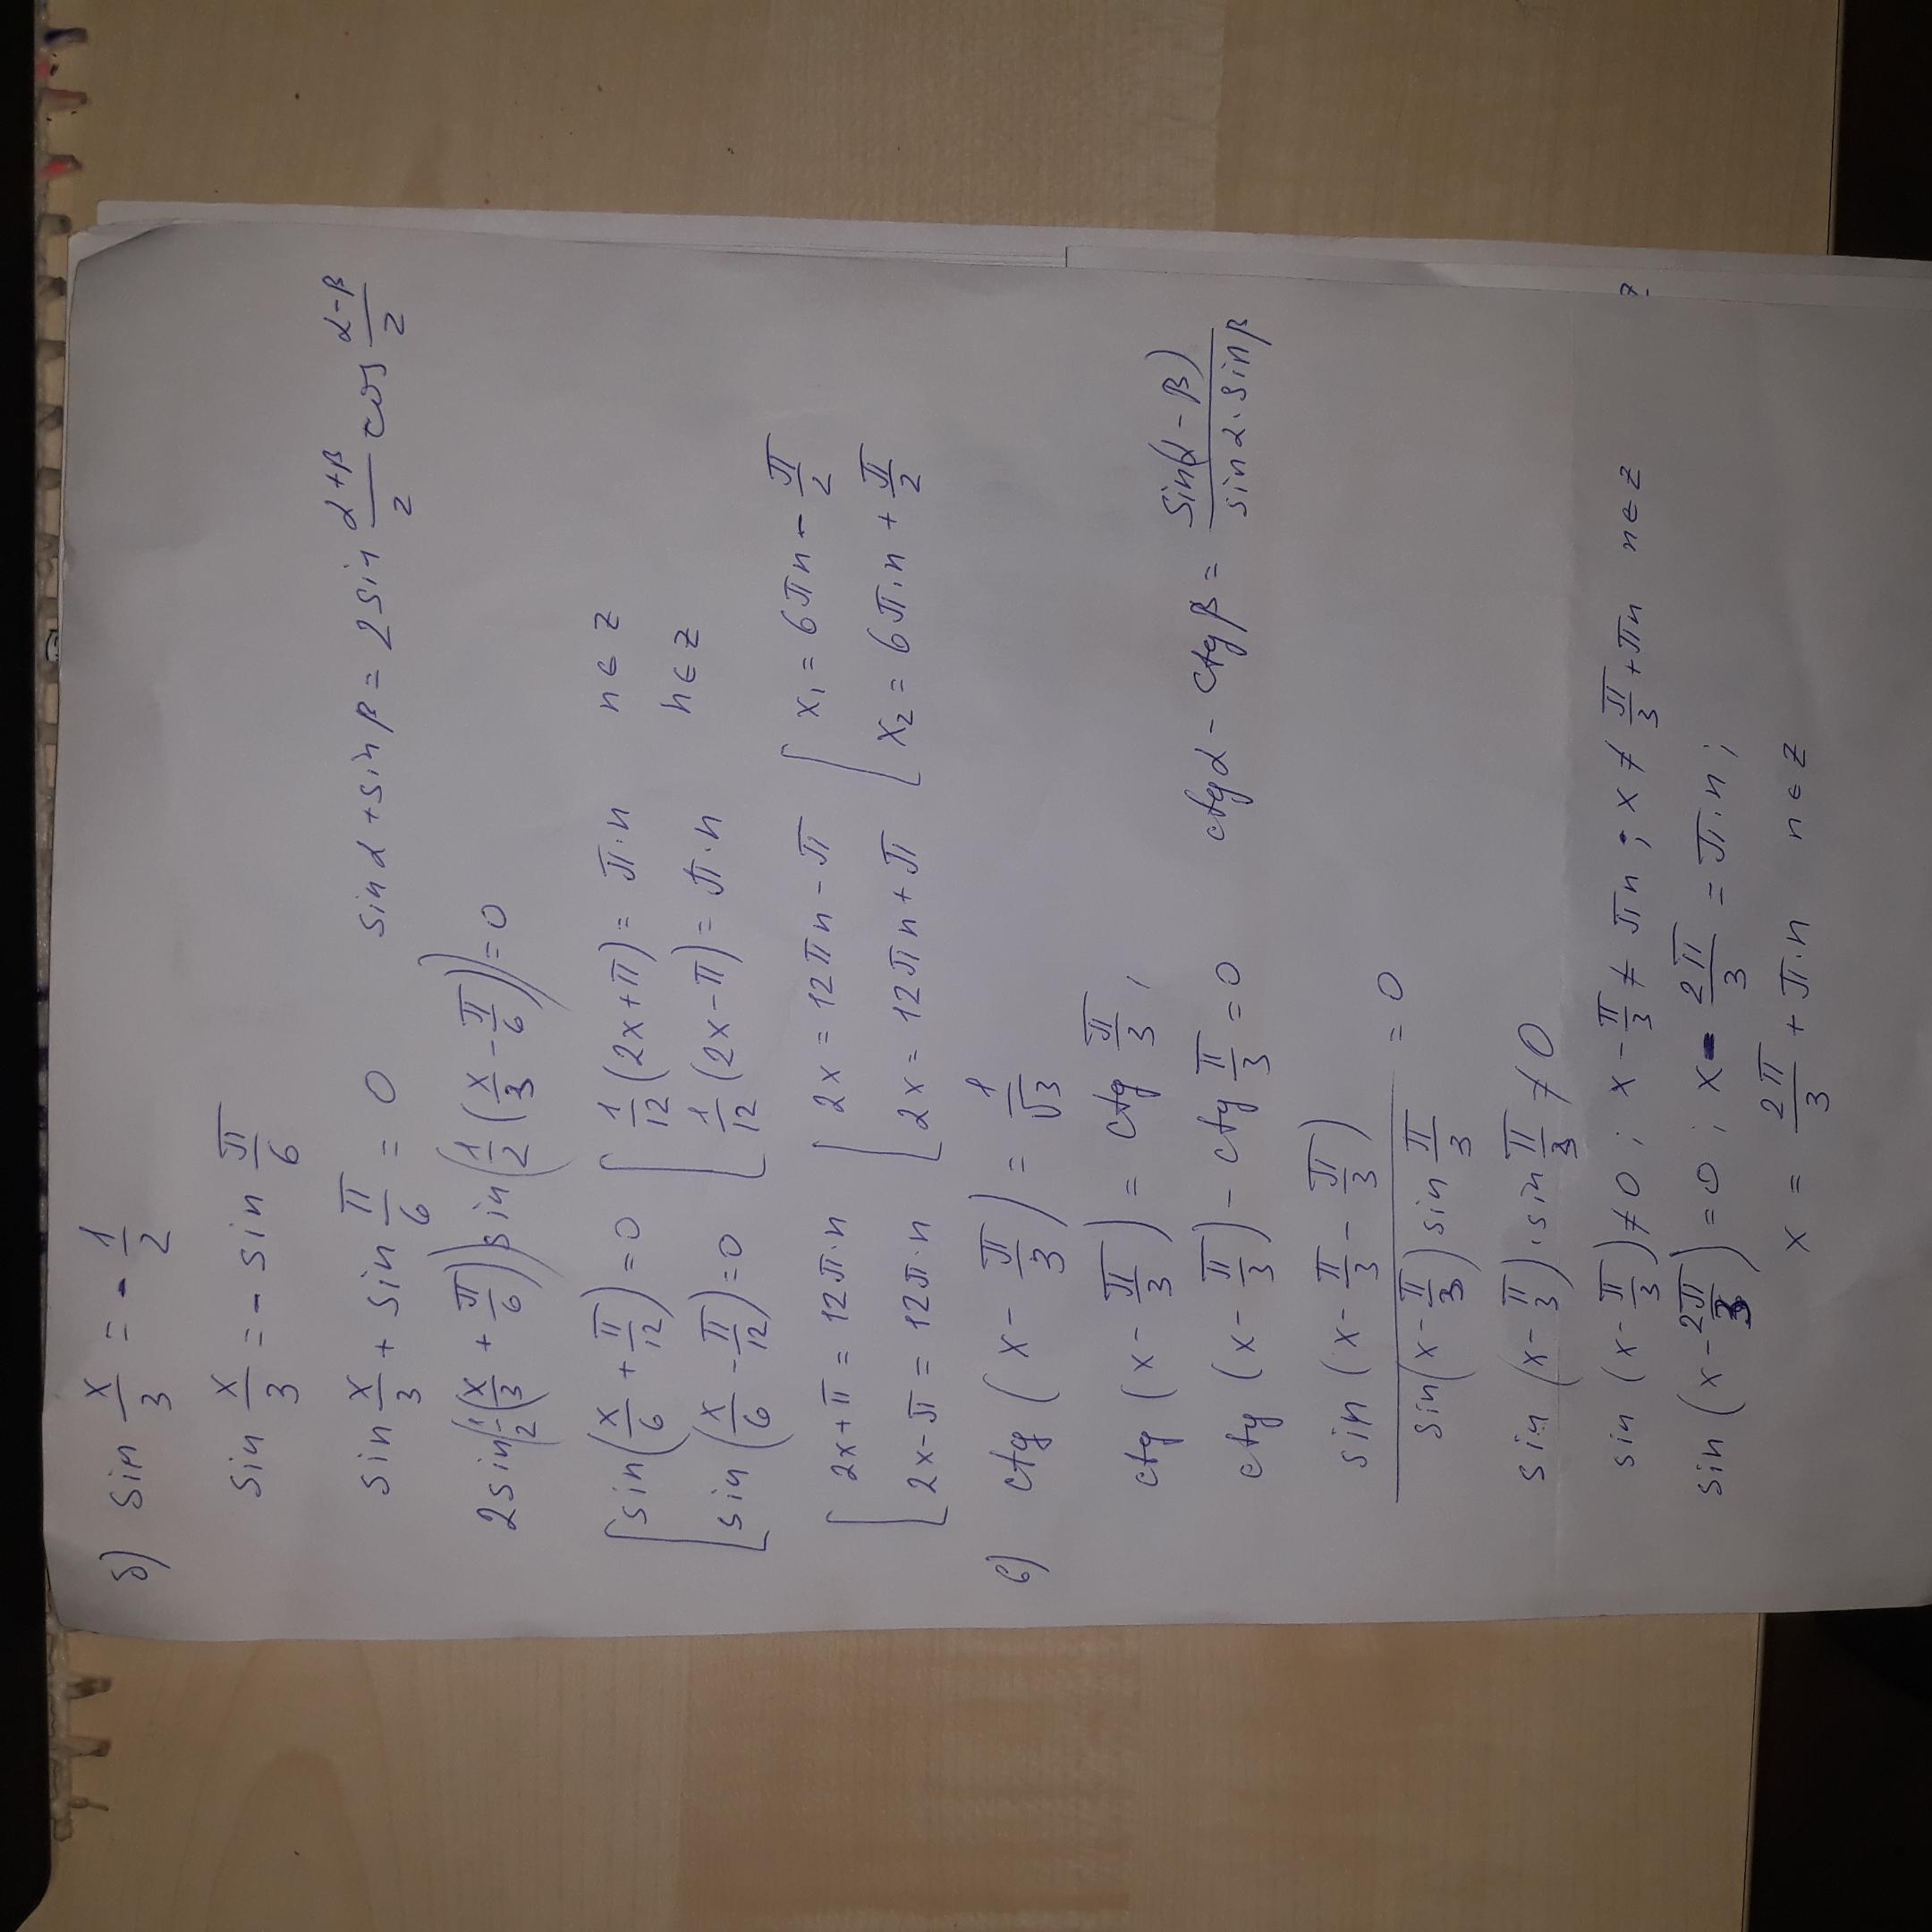 б) sin x/3 = - 1/2
sin x/3 = - sin π/6
sin x/3 + sin π/6 = 0 sin α + sin β = 2 sin (α+β)/2 cos (α-β)/2
2 sin(1/2(x/3 + π/6)) sin(1/2(x/3 - π/6)) = 0
[ sin(x/6 + π/12) = 0 [ 1/12(2x+π) = π·n n ∈ z
[ sin(x/6 - π/12) = 0 [ 1/12(2x-π) = π·n n ∈ z
[ 2x+π = 12π·n [ 2x = 12πn - π [ x₁ = 6πn - π/2
[ 2x-π = 12π·n [ 2x = 12πn + π [ x₂ = 6π·n + π/2
в) ctg (x - π/3) = 1/√3
ctg (x - π/3) = ctg π/3,
ctg (x - π/3) - ctg π/3 = 0 ctg α - ctg β = sin(α - β)/(sin α · sin β)
sin (x - π/3 - π/3)/(sin(x - π/3) sin π/3) = 0
sin (x - π/3) · sin π/3 ≠ 0
sin (x - π/3) ≠ 0; x - π/3 ≠ πn; x ≠ π/3 + πn n ∈ z
sin (x - 2π/3) = 0; x - 2π/3 = π·n;
x = 2π/3 + π·n n ∈ z